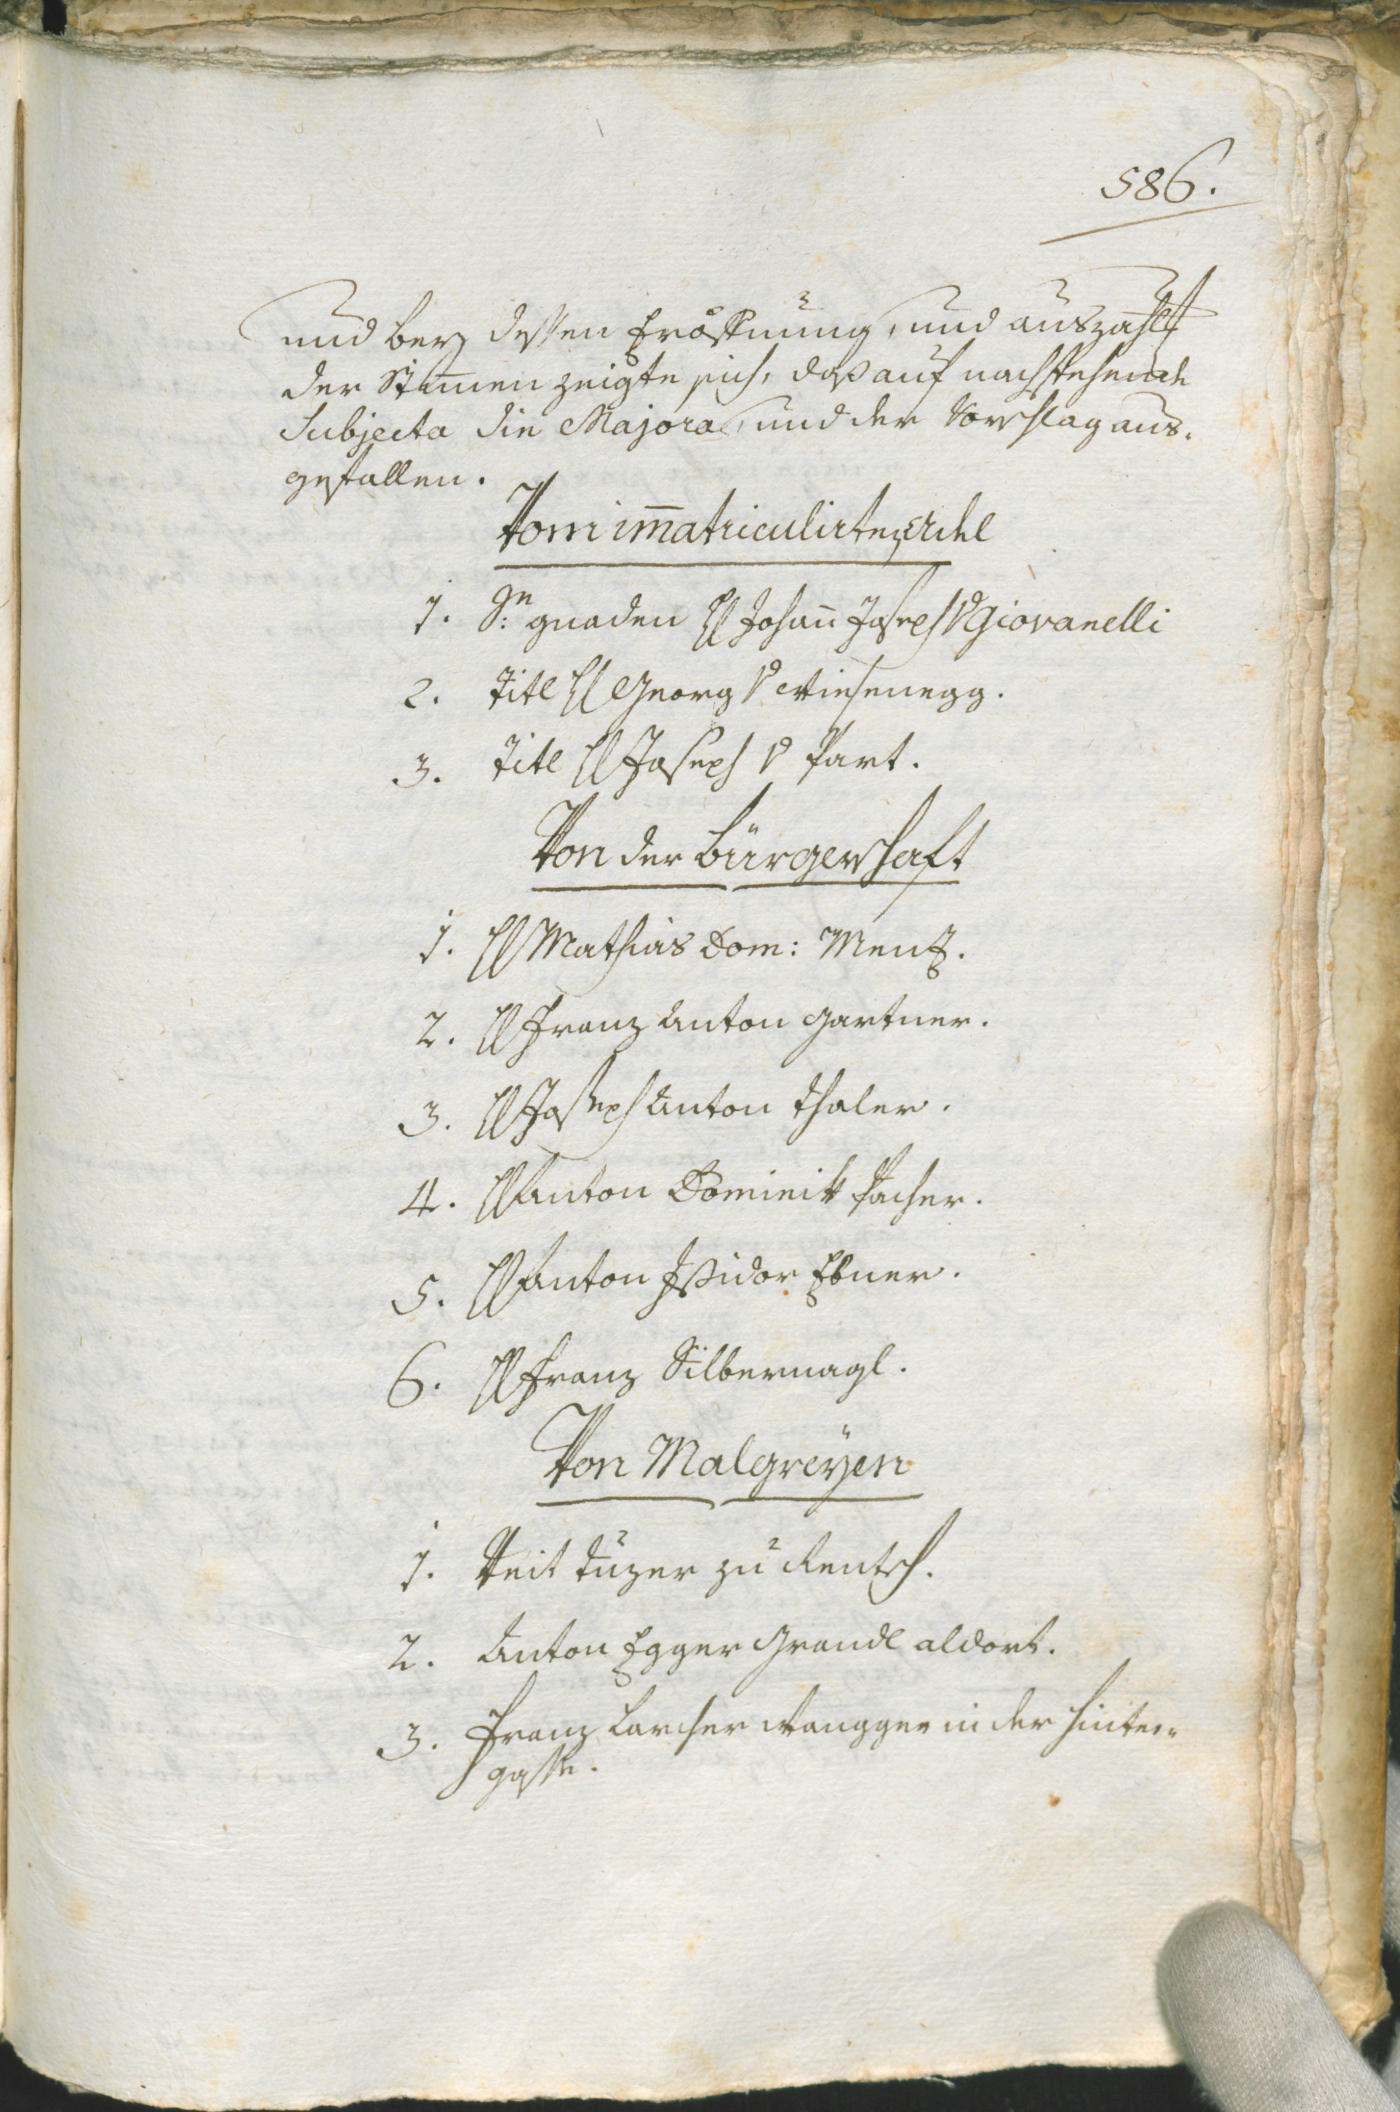 586.
und bey dessen Eröffnung, und auszahlg
der Stim̄en zeigte sich, daß auf nachstehende
Subjecta die Majora, und der Vorschlag aus-
gefallen.
Vom im̄atriculirten Adel
1. Sr. gnaden H Johan̄ Joseph v Giovanelli
2. Titl H Georg v Wiesenegg.
3. Titl H Joseph v Part.
Von der Bürgerschaft
1. H Mathias Dom: Menz.
2. H Franz Anton Gartner.
3. H Joseph Anton Thaler.
4. H Anton Dominik Pacher.
5. H Anton Issidor Ebner.
6. H Franz Silbernagl.
Von Malgreÿen
1. Veit Tuzer zu Rentsch.
2. Anton Egger Grandl aldort.
3. Franz Larcher Wangger in der hinter-
gasse.